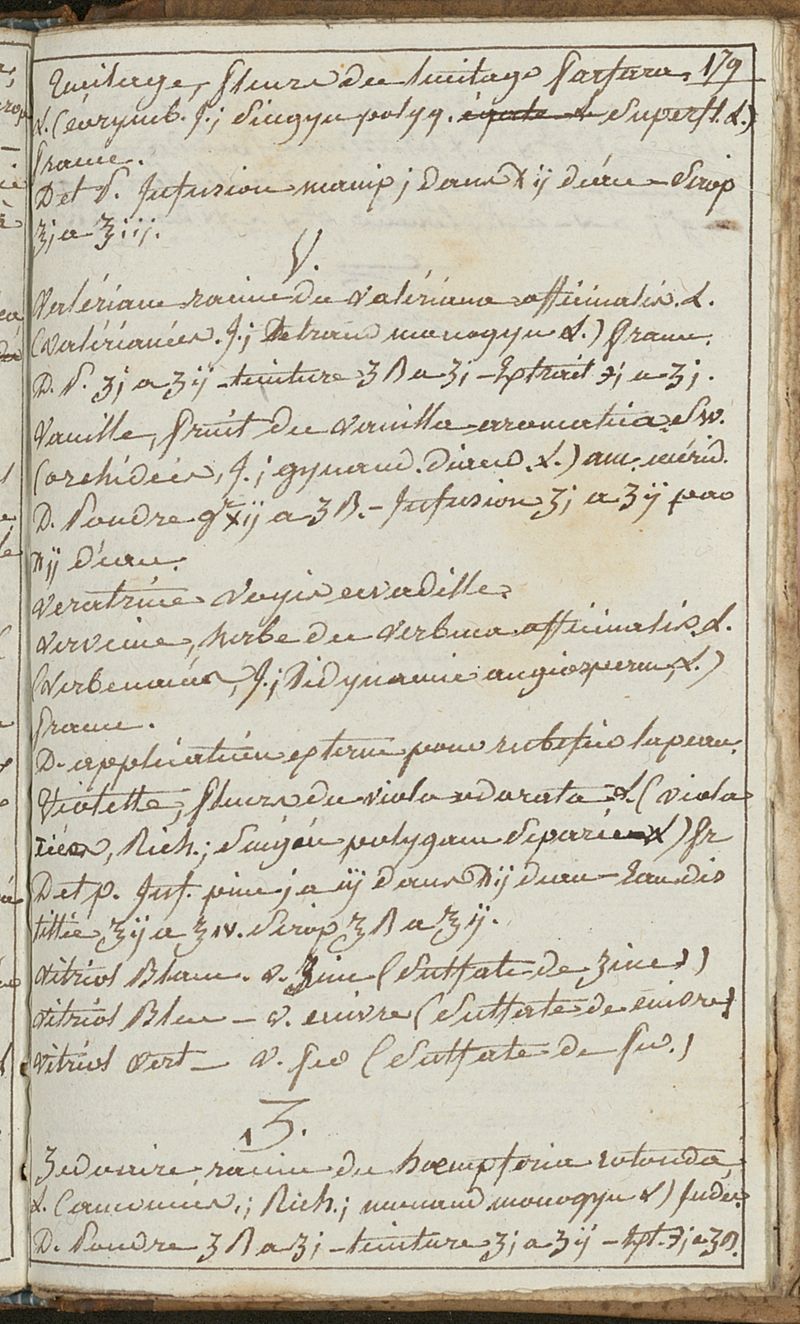 Tussilage, fleurs du tussilago farfara, 179
L. (corymb. J.; Singyn polyg. égale L superfl. L.)
france.
D et P. Infusion manip j dans ℔ ij d'eau - Sirop
ʒj a ʒiij.
V.
Valériane racine du valériana officinalis. L.
(valérianées. J.; Tetrand monogyn L.) france.
D. P. ʒj a ʒij - teinture ʒß a ʒj - Extrait ℈j a ʒj.
Vanille, fruit du vanilla aromatica. Sw.
(orchidées, J.; gynand. diand. L.) am. mérid.
D. Poudre gr xij a ʒß. - Infusion ʒj a ʒij par
℔ij d'eau.
Veratrine Voyis cevadille.
Verveine, herbe du Verbena officinalis. L.
(Verbenacées, J.; Didynamie angiosperm, L.)
france.
D. application externe pour rubefier la peau.
Violette, fleurs du viola odorata L. (viola
riées, Rich.; Singén polygam Séparée L) fr
D et p. Inf. pinc j a iij dans ℔ij d'eau - Eau dis
tillée ʒij a ʒiv. Sirop ʒß a ʒij.
Vitriol Blanc. v. Zinc (Sulfate de zinc)
Vitriol Bleu - v. cuivre (Sulfate de cuivre)
Vitriol vert - v. fer (Sulfate de fer.)
Z.
Zedoaire, racine du Kœmpferia rotonda,
L. (amomées,; Rich.; monand monogyn L) Indes.
D. Poudre ʒß a ʒj - teinture ʒj a ʒij - Ext. ℈j a ʒß.